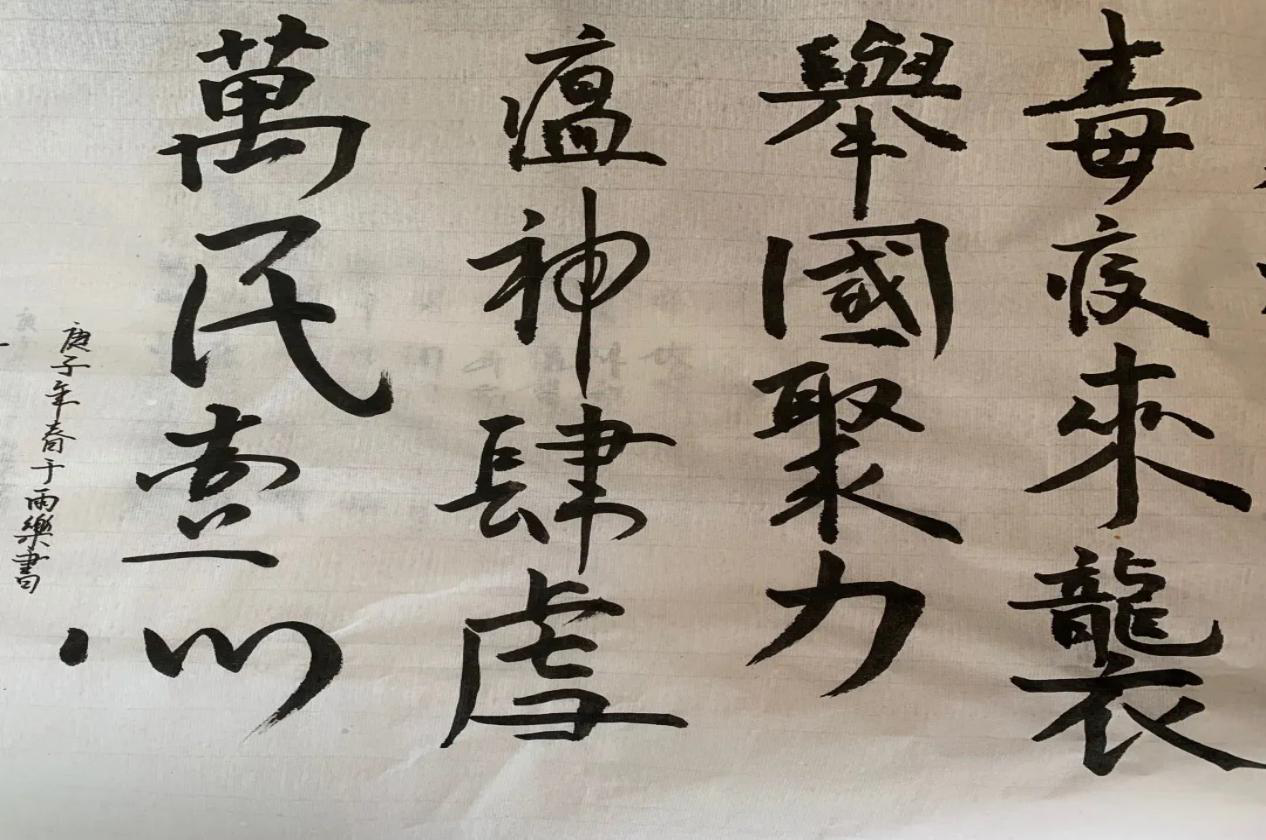 毒疫來襲
舉國聚力
瘟神肆虐
萬民壹心
庚子年春于雨樂書